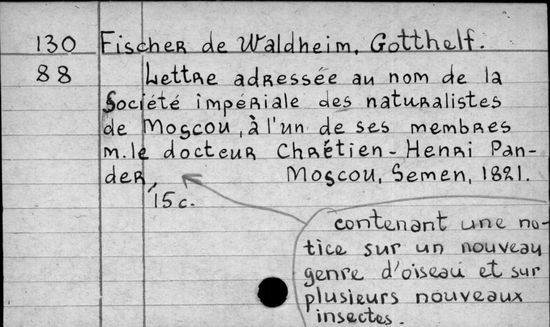 130 Fischer de Waldheim, Gotthelf.
88 Lettre adressée au nom de la
Société impériale des naturalistes
de Moscou, à l'un de ses membres
m. le docteur Chrétien-Henri Pan-
der, Moscou, Semen, 1821.
15 c.
contenant une no-
tice sur un nouveau
genre d'oiseau et sur
plusieurs nouveaux
insectes.